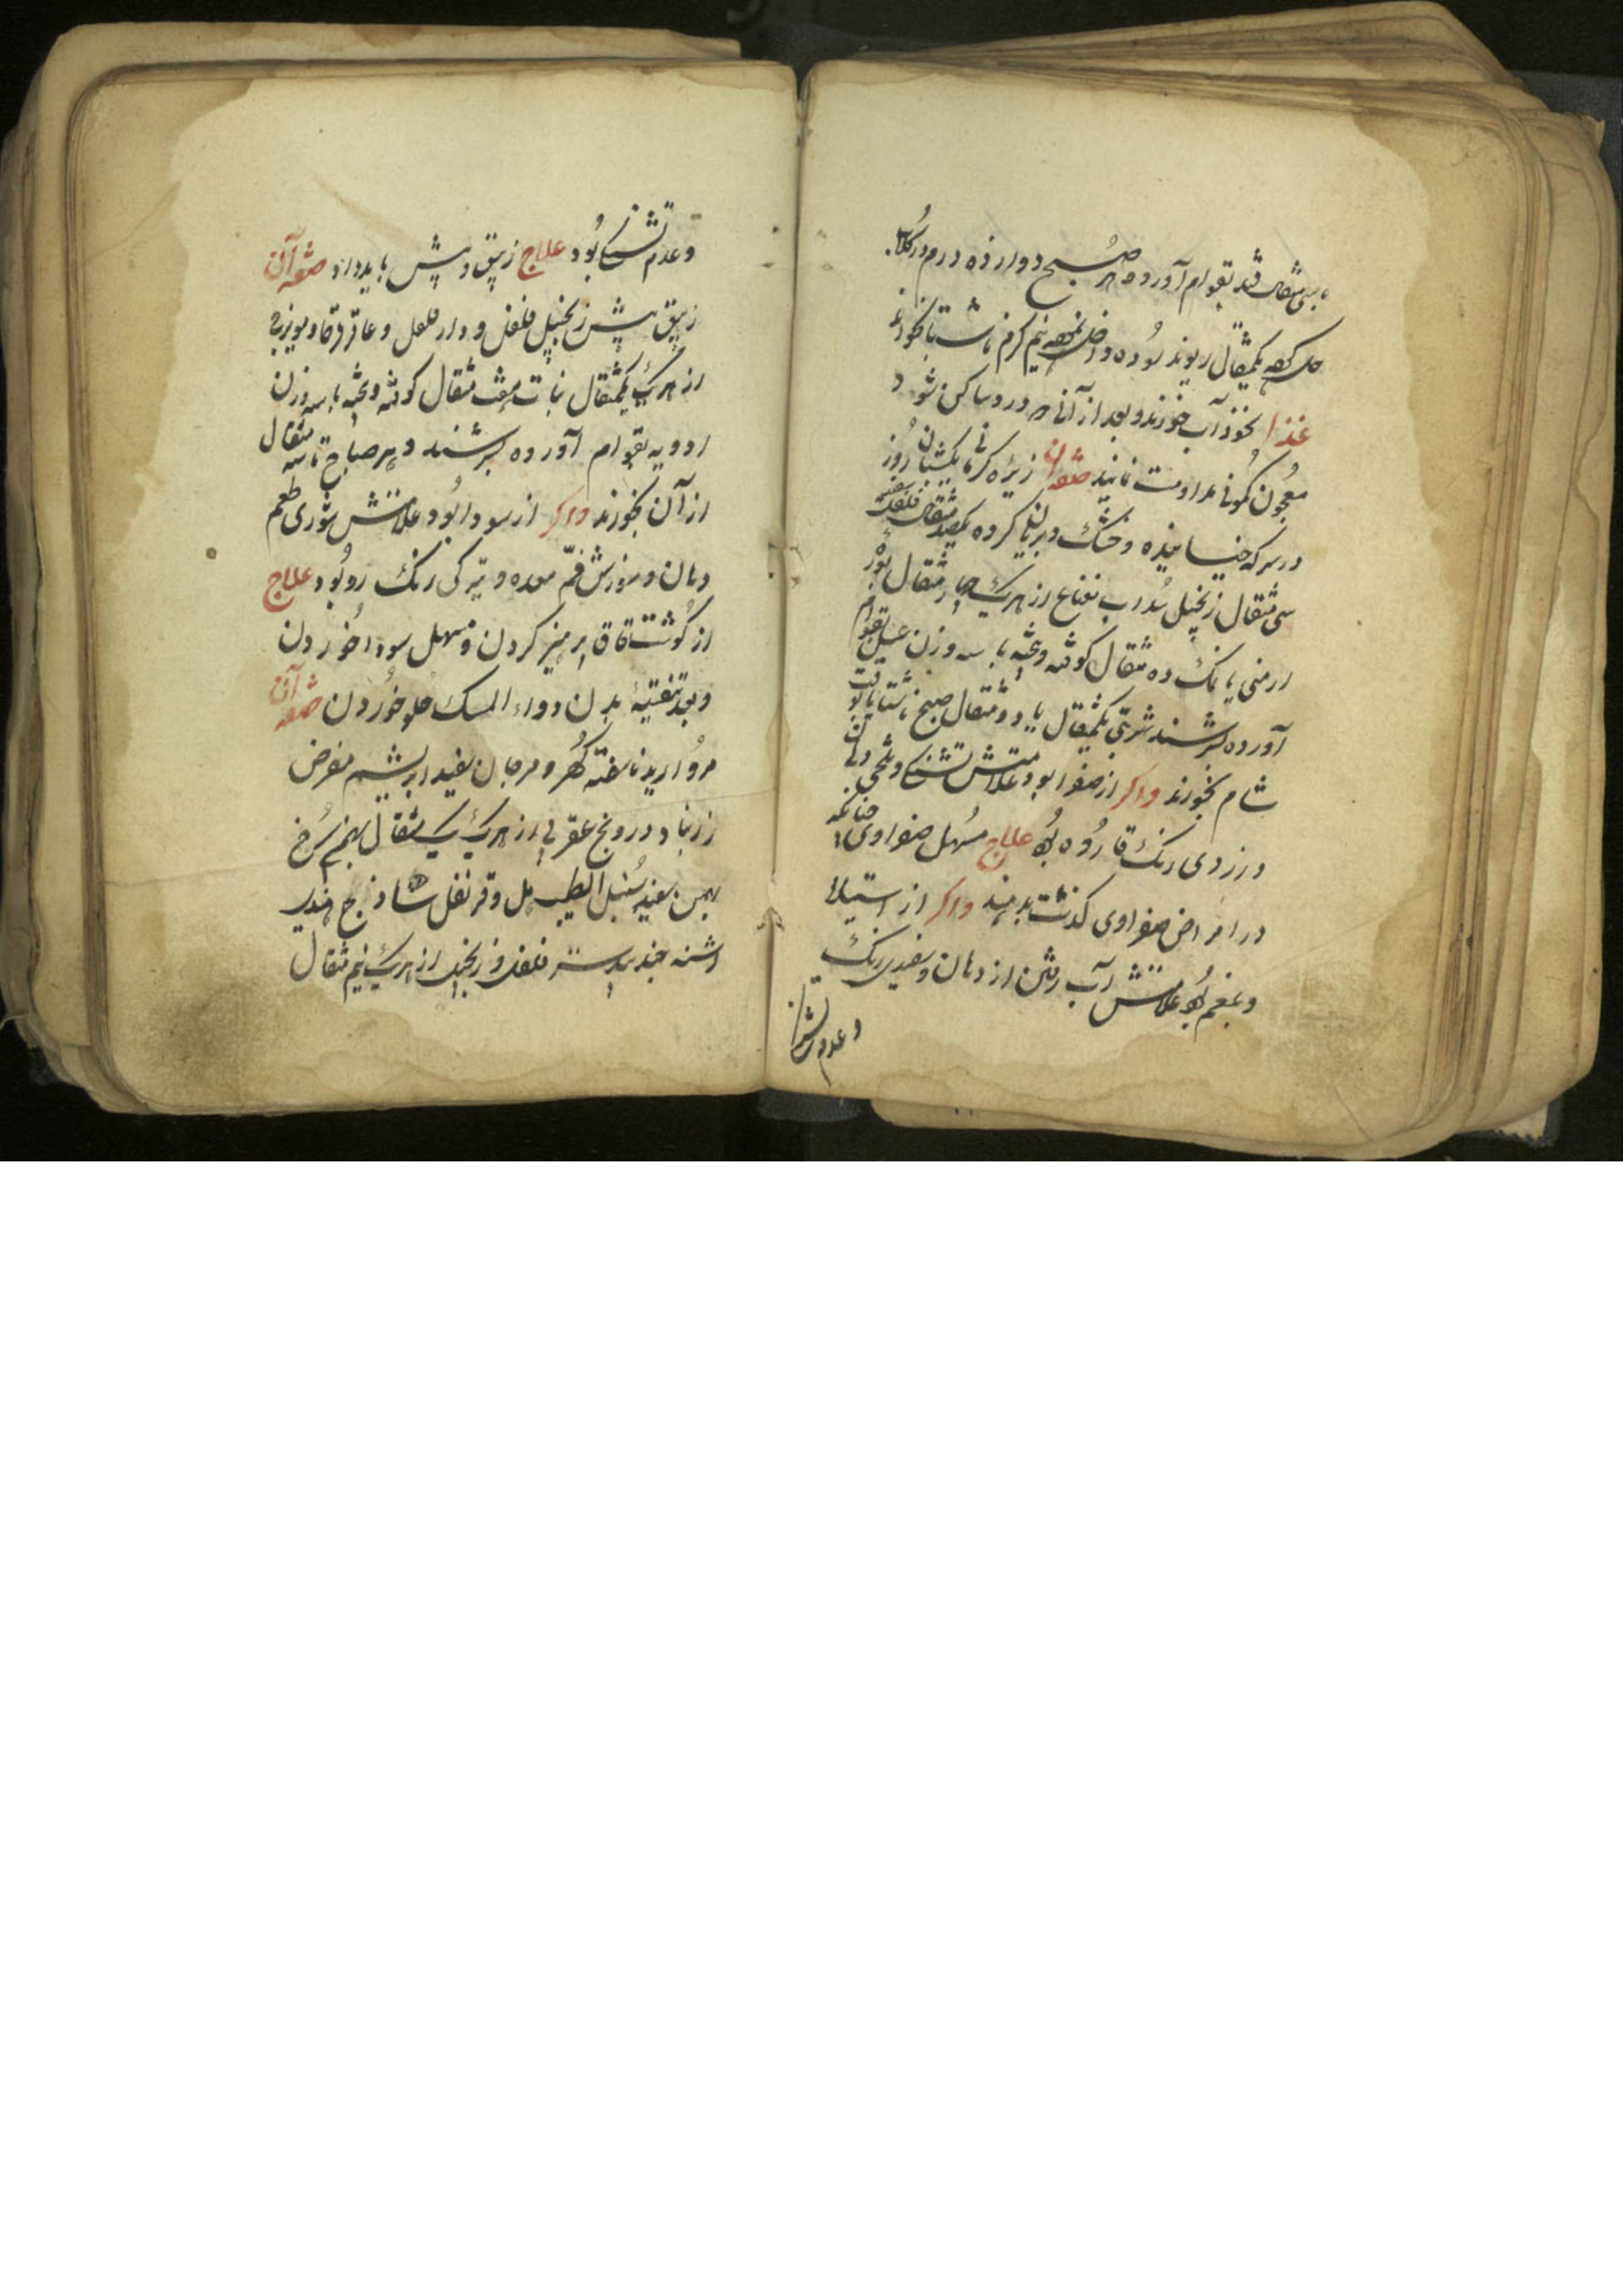 با سی مثقال قند بقوام آورده هر صبح دوازده درم در گلاب
حل کرده یکمثقال ریوند سوده داخل نموده نیم گرم ناشتا بخورد
غذا نخود آب خورند و بعد از آنکه درد ساکن شود
معجون کمونی مداومت نمایند صفه آن زیره کرمانی یکشبانروز
در سرکه خیسانیده و خشک و بریان کرده یکصد مثقال فلفل سفید
سی مثقال زنجپیل سداب نعناع از هریک چهار مثقال بوره
ارمنی یا نمک ده مثقال کوفته و پخته با سه وزن عسل بقوام
آورده بسرشند شربتی یکمثقال یا دو مثقال صبح ناشتا یا وقت
شام بخورند واکر از صفرا بود علامتش تشنکی و تلخی دهان
و زردی رنک قاروره بود علاج مسهل صفراوی چنانکه
در امراض صفراوی کذشت بدهند واکر از استیلاء
و بلغم بود علامتش آب رفتن از دهان و سفیدی رنک
و عدم تشنکی
وعدم تشنکی بود علاج زیبق و پیش باید داد صفه آن
زیبق پیش زنجپیل فلفل و دارفلفل و عاقرقرحا و میویزج
از هریک یکمثقال نبات هفت مثقال کوفته و پخته با سه وزن
ادویه بقوام آورده بسرشند و هر صباح تا سه مثقال
از آن بخورند واکر از سودا بود علامتش شوری طعم
دهان و سوزش فم معده و تیرکی رنک رو بود علاج
از کوشت قاق پرهیز کردن و مسهل سودا خوردن
و بعد تنقیهٔ بدن دواء المسک حلو خوردن صفه آن
مروارید ناسفته کهر و مرجان سفید ابریشم مقرض
زرنباد درونج عقربی از هریک یک مثقال بهمن سرخ
بهمن سفید سنبل الطیب هل و قرنفل شادنج هندی
اشنه جندبیدستر فلفل و زنجپیل از هریک نیم مثقال